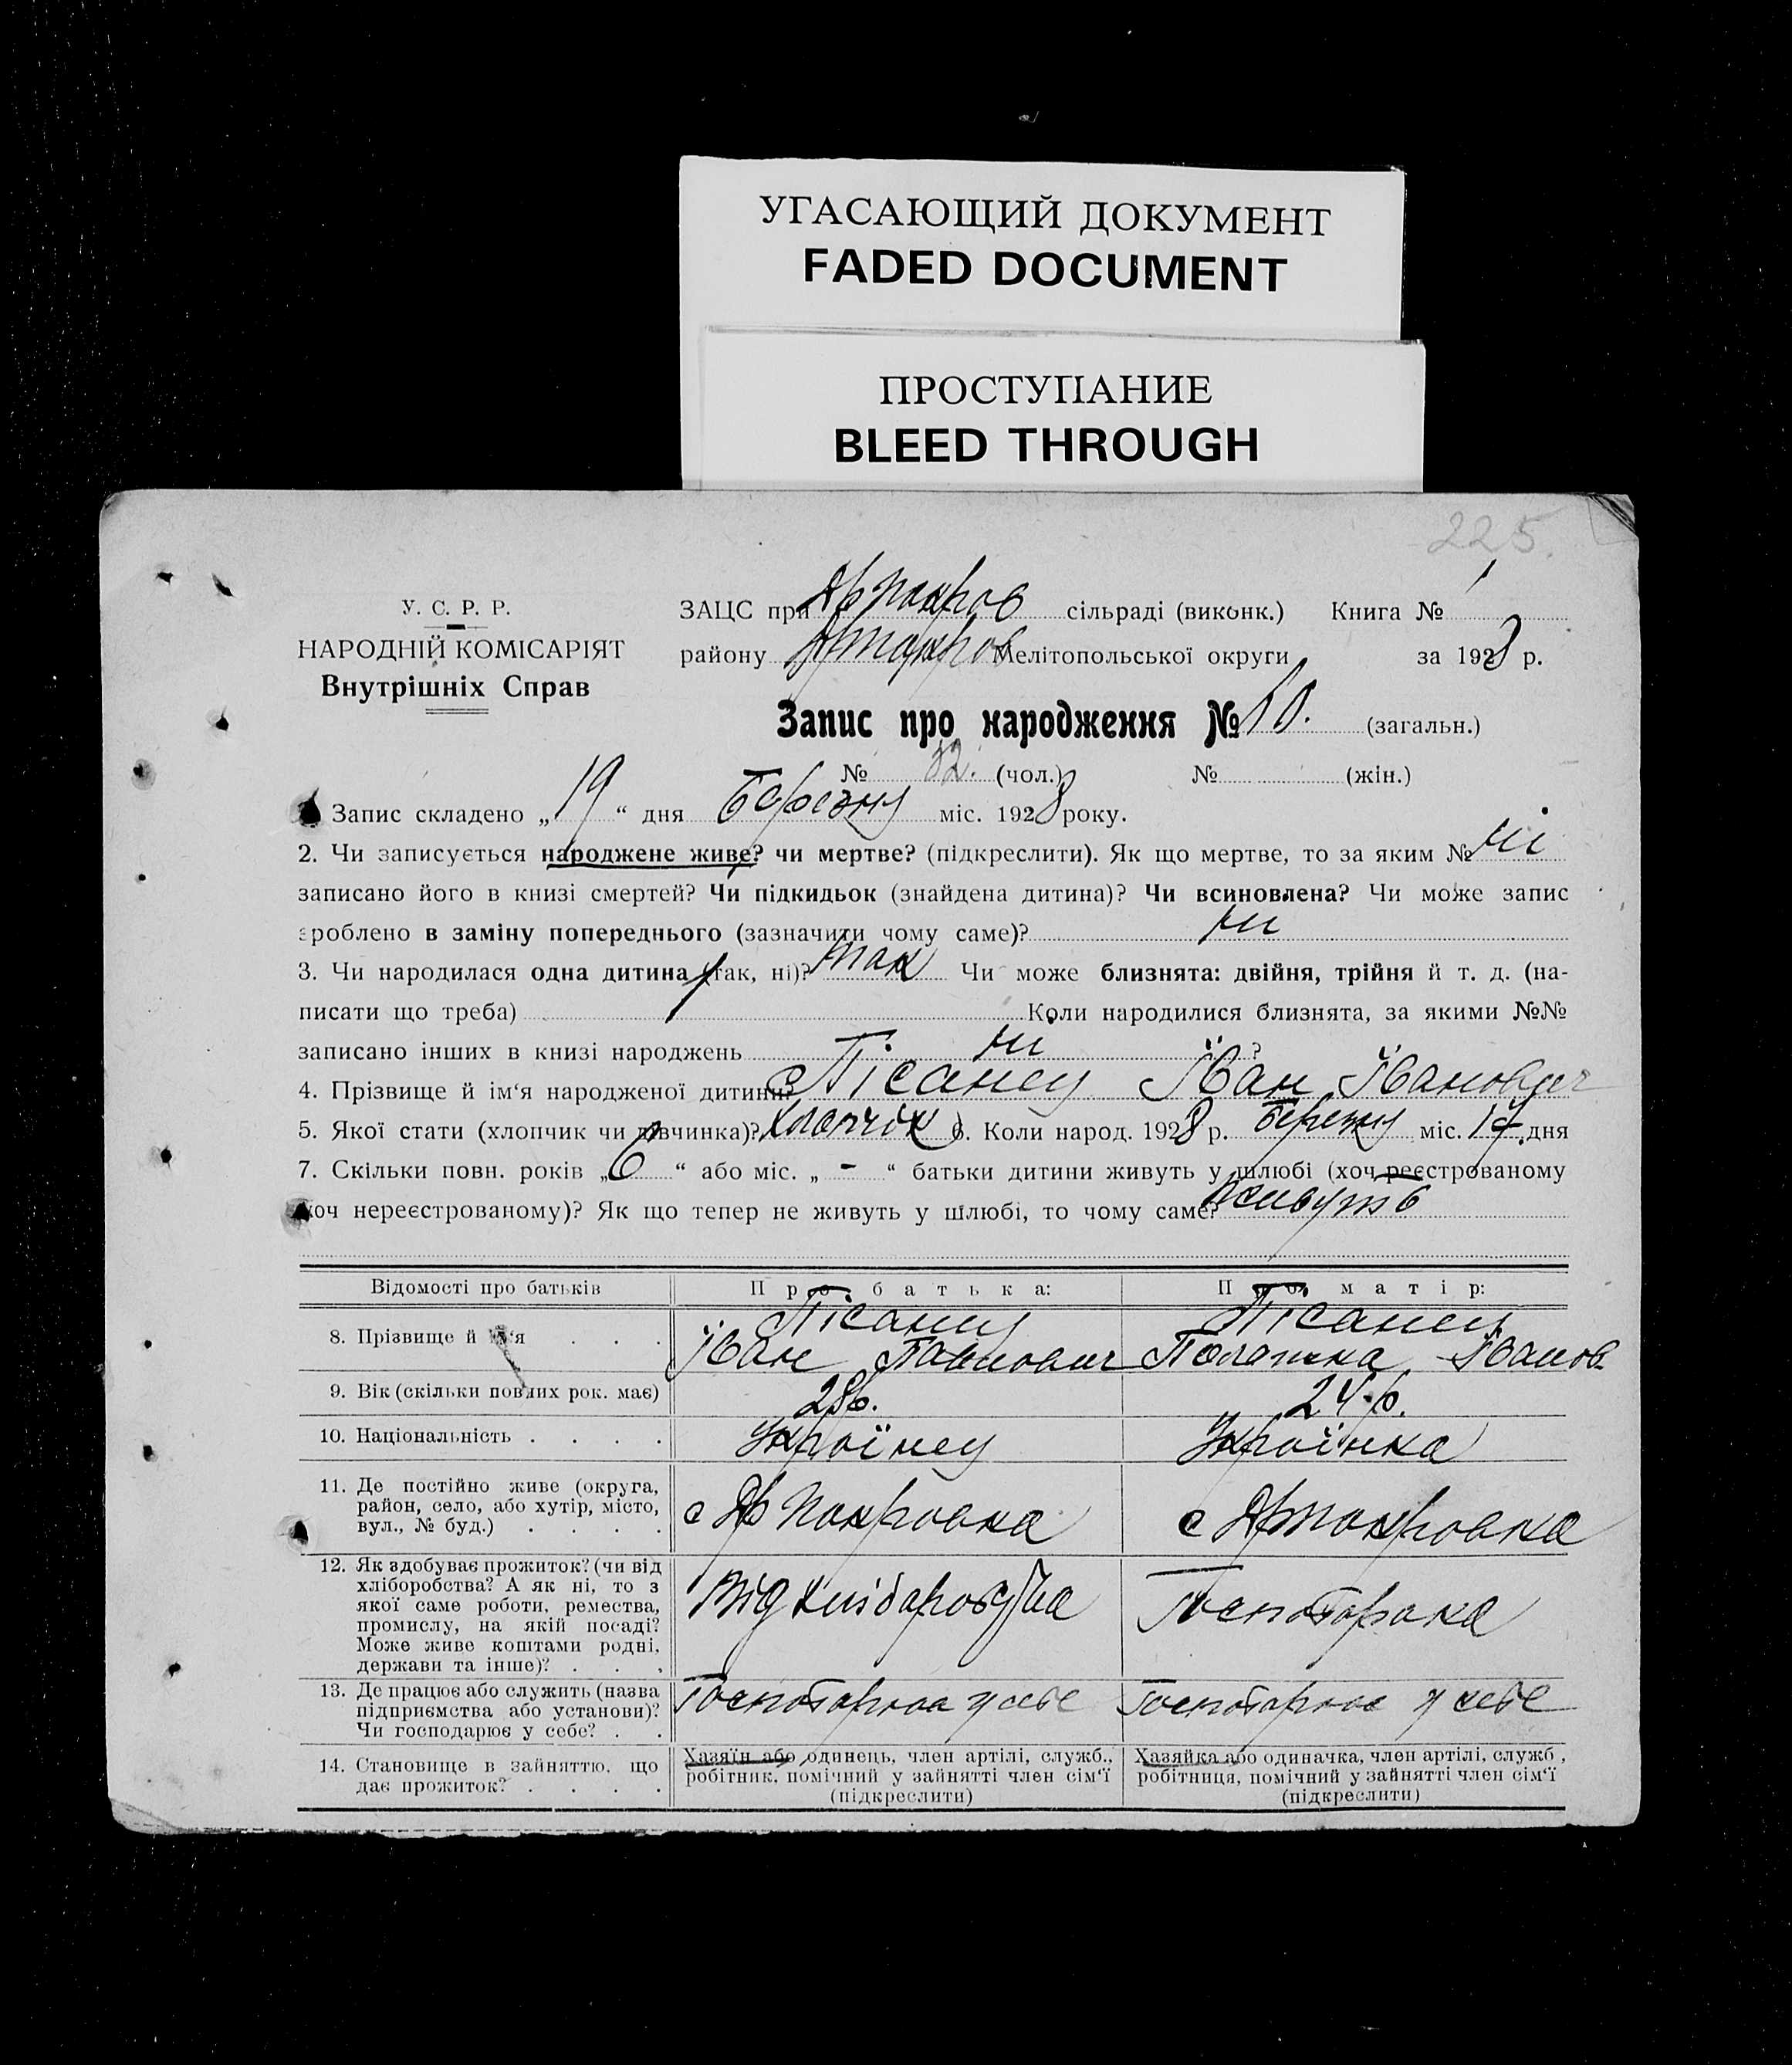 УГАСАЮЩИЙ ДОКУМЕНТ
FADED DOCUMENT
ПРОСТУПАНИЕ
BLEED THROUGH
225.
У. С. Р. Р.
НАРОДНІЙ КОМІСАРІЯТ
Внутрішніх Справ
ЗАЦС при сільраді (виконк.) Книга № 1
району Мелітопольської округи за 1928 р.
Запис про народження № (загальн.)
№ 32. (чол.) № (жін.)
Запис складено „19“ дня Березну міс. 1928 року.
2. Чи записується народжене живе? чи мертве? (підкреслити). Як що мертве, то за яким № ні
записано його в книзі смертей? Чи підкидьок (знайдена дитина)? Чи всиновлена? Чи може запис
зроблено в заміну попереднього (зазначити чому саме)? ни
3. Чи народилася одна дитина (так, ні)? так Чи може близнята: двійня, трійня й т. д. (на-
писати що треба) Коли народилися близнята, за якими №№
записано інших в книзі народжень ни ?
4. Прізвище й ім‘я народженої дитини? Пісанец Іван Іванович
5. Якої стати (хлопчик чи дівчинка)? Хлопчік 6. Коли народ. 1928 р. Березну міс. 17. дня
7. Скільки повн. років „6“ або міс. „-“ батьки дитини живуть у шлюбі (хоч реєстрованому
хоч нереєстрованому)? Як що тепер не живуть у шлюбі, то чому саме? живуть
Відомості про батьків Про батька: Про матір:
8. Прізвище й ім‘я Пісанец Іван Павлович Пісанец Полашка Іванов.
9. Вік (скільки повних рок. має) 28р. 24.р.
10. Національність Украінец Украінка
11. Де постійно живе (округа,
район, село, або хутір, місто,
вул., № буд.) с Покровка с
12. Як здобуває прожиток? (чи від
хліборобства? А як ні, то з
якої саме роботи, ремества,
промислу, на якій посаді?
Може живе коштами родні,
держави та інше)? Від
13. Де працює або служить (назва
підприємства або установи)?
Чи господарює у себе? у себе у себе
14. Становище в зайняттю, що
дає прожиток?
Хазяїн або одинець, член артілі, служб.,
робітник, помічний у зайнятті член сім‘ї
(підкреслити)
Хазяйка або одиначка, член артілі, служб.,
робітниця, помічний у зайнятті член сім‘ї
(підкреслити)